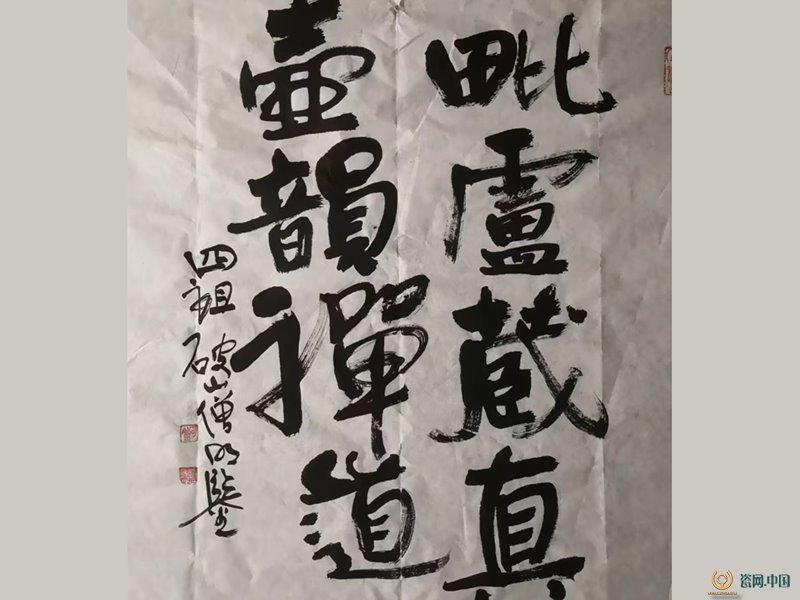 毗盧蔵真
壺韻禪道
四祖破山僧明鑒
瓷网.中国